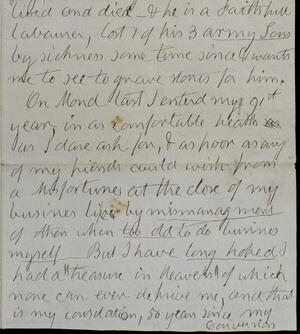 lived and died — & he is a Faithfull
Labourer, lost 1 of his 3 army Sons
by sickness some time since & wants
me to see to grave stones for him.
On Mond last I enterd my 91st
year, in as comfortable health
as I dare ask for, & as poor as any
of my friends could wish from
a Misfortunes at the close of my
busines life by mismanagment
of others when too old to do busines
myself But I have long hoped I
had a "treasure in Heaven" of which
none can ever deprive me, and that
is my consolation, 50 year since my
Conversion